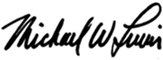 Michael W Lewis